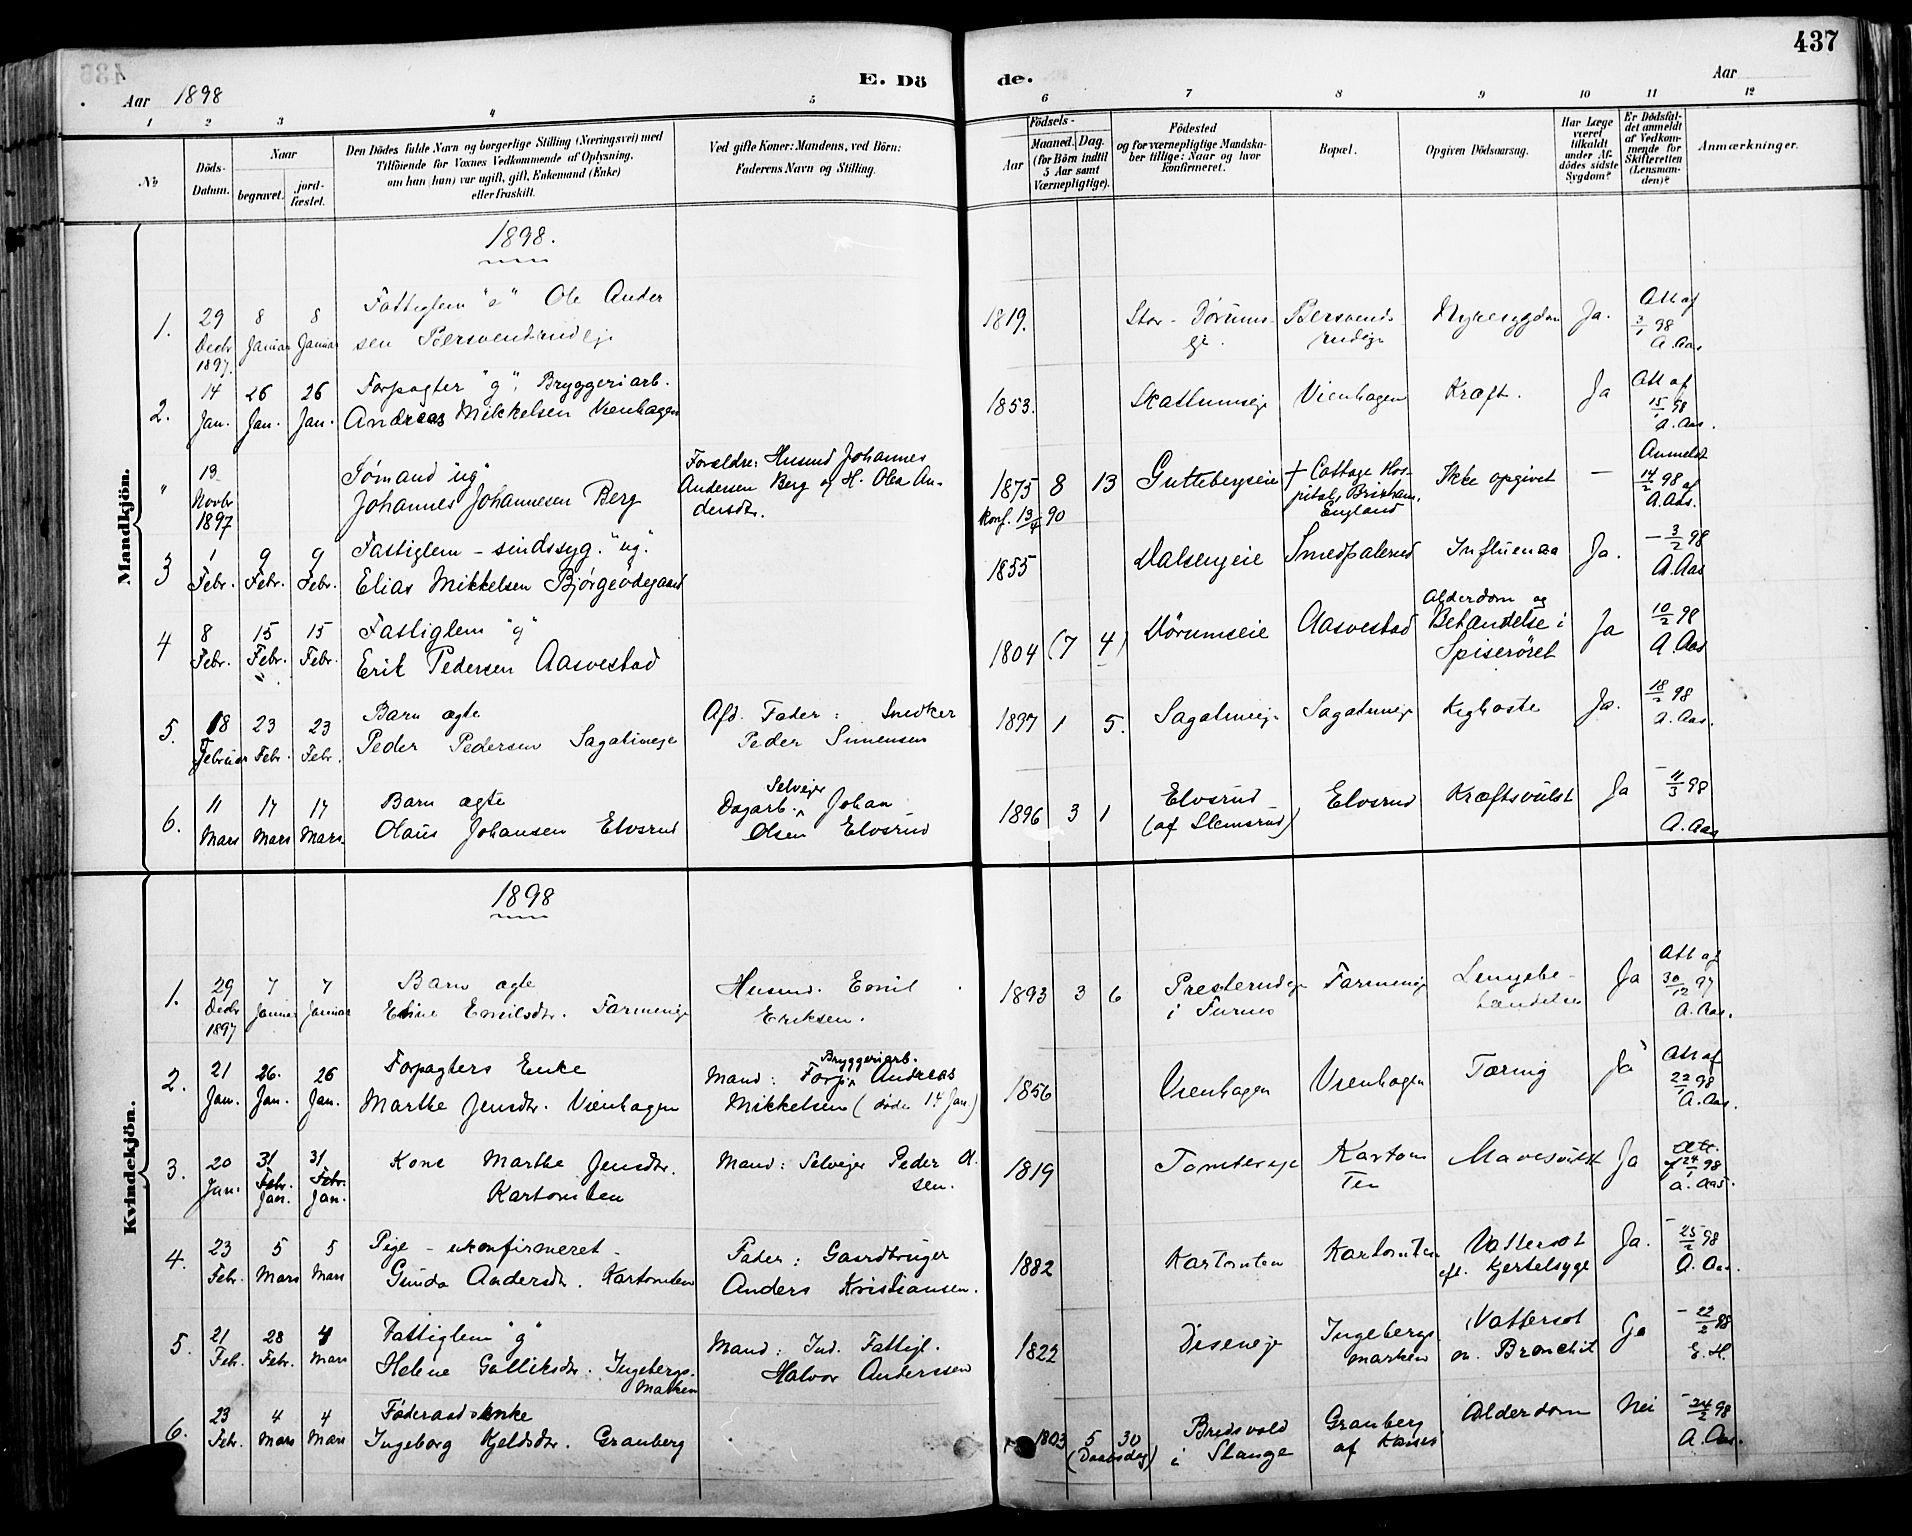 437
E. Dö de.
Aar 1898
Aar
1 2 3 4 5 6 7 8 9 10 11 12
No
Döds-Datum.
Naar
begravet.
jord-fæstet.
Den Dödes fulde Navn og borgerlige Stilling (Næringsvei) med
Tilföiende for Voxnes Vedkommende af Oplysning,
om han (hun) var ugift, gift, Enkemand (Enke)
eller fraskilt.
Ved gifte Koner: Mandens, ved Börn:
Faderens Navn og Stilling.
Födsels-
Aar
Maaned. Dag.
(for Börn indtil
5 Aar samt
Værnepligtige).
Födested
og for værnepligtige Mandska-
ber tillige: Naar og hvor
konfirmeret.
Bopæl.
Opgiven Dödsaarsag.
Har Læge
været
tilkaldt
under Af-
dödes sidste
Sygdom?
Er Dödsfal-
det anmeldt
af Vedkom-
mende for
Skifteretten
(Lensman-
den)?
Anmærkninger.
Mandkjön.
1898.
1. 29 Decbr 1897. 8 Januar 8 Januar
Fattiglem "e" Ole Ander
sen
1819.
Ja.
Att af
3/1 98
A. Aas
2. 14 Jan. 26 Jan. 26 Jan.
Forpagter "g". Bryggeriarb.
Andreas Mikkelsen Vienhagen
1853. Vienhagen Kræft. Ja
Att af
15/1 98
A. Aas.
" 13 Novbr 1897
Sømand "ug"
Johannes Johannesen Berg
Forældre: Husmd Johannes
Andersen Berg og H. Olea An-
dersdtr.
1875 8 13
Konf. 13/4 90
Gutterbergseie
+ Cottage Hos-
pital, Brixham,
England
Ikke opgivet —
Anmeldt
14/2 98 af
A. Aas.
3 1 Febr. 9 Febr. 9 Febr.
Fattiglem – sindssyg. "ug".
Elias Mikkelsen Bjørgeødegaard
1855 Influenza Ja.
- 3/2 98
A. Aas
4 8 Febr. 15 Febr. 15 Febr.
Fattiglem "g"
Erik Pedersen Aasvestad
1804 (7 4) Vørumseie Aasvestad
Alderdom og
Betændelse i
Spiserøret
Ja
10/2 98
A. Aas
5. 18 Februar 23 Febr. 23 Febr.
Barn ægte
Peder Pedersen
Afd. Fader: Snedker
Peder Simensen
1897 1 5. Kighoste Ja.
18/2 98
A. Aas.
6. 11 Mars 17 Mars 17 Mars
Barn ægte
Olaus Johansen Elvsrud
Selveier
Dagarb. Johan
Olsen Elvsrud
1896 3 1
Elvsrud
(af Slemsrud)
Elvsrud Kræftsvulst Ja
- 11/3 98
A. Aas
Kvindekjön.
1898
1. 29 Decbr 1897 7 Januar 7 Januar
Barn ægte
Eline Emilsdtr. Farmeneje
Husmd. Emil
Eriksen.
1893 3 6
Presterudeje
i Furnes
Farmeneje
Lungebe-
tændelse
Ja
Att af
30/12 97
A. Aas.
2. 21 Jan. 26. Jan. 26 Jan.
Forpagters Enke
Marthe Jensdtr. Vienhagen
Bryggeriarb.
Mand: Forp. Andreas
Mikkelsen (døde 14 Jan)
1856 Vienhagen Vienhagen Tæring Ja
Att af
22/1 98
A. Aas.
3. 20 Jan. 31 Febr. Jan. 31 Febr. Jan.
Kone Marthe Jensdtr.
Kartomten
Mand: Selvejer Peder A.
sen.
1819
Kartom
ten
Mavesvulst Ja
Att.
af 24/1 98
A. Aas.
4. 23 Febr. 5 Mars 5 Mars
Pige – ukonfirmeret –
Gunda Andersdtr. Kartomten
Fader: Gaardbruger
Anders Kristiansen.
1882 Kartomten Kartomten
Vattersot
eft. Kjertelsyge
Ja.
- 25/2 98
A. Aas.
5. 21 Feb. 28 Febr. 4 Mars
Fattiglem "g"
Helene Gulliksdtr. Ingebergs-
marken
Mand: Ind. Fattigl.
Halvor Anderssen
1822 Diseneje
Ingebergs
marken
Vattersot
m. Bronchit
Ja
- 22/2 98
E. H.
6. 23 Feb. 4 Mars 4 Mars
Føderaadsenke
Ingeborg Kjeldsdtr. Granberg
1803 5 30
(Daabsdag)
Bredsvold
i Stange
Granberg
af Kaises
Alderdom Nei
- 24/2 98
A. Aas.